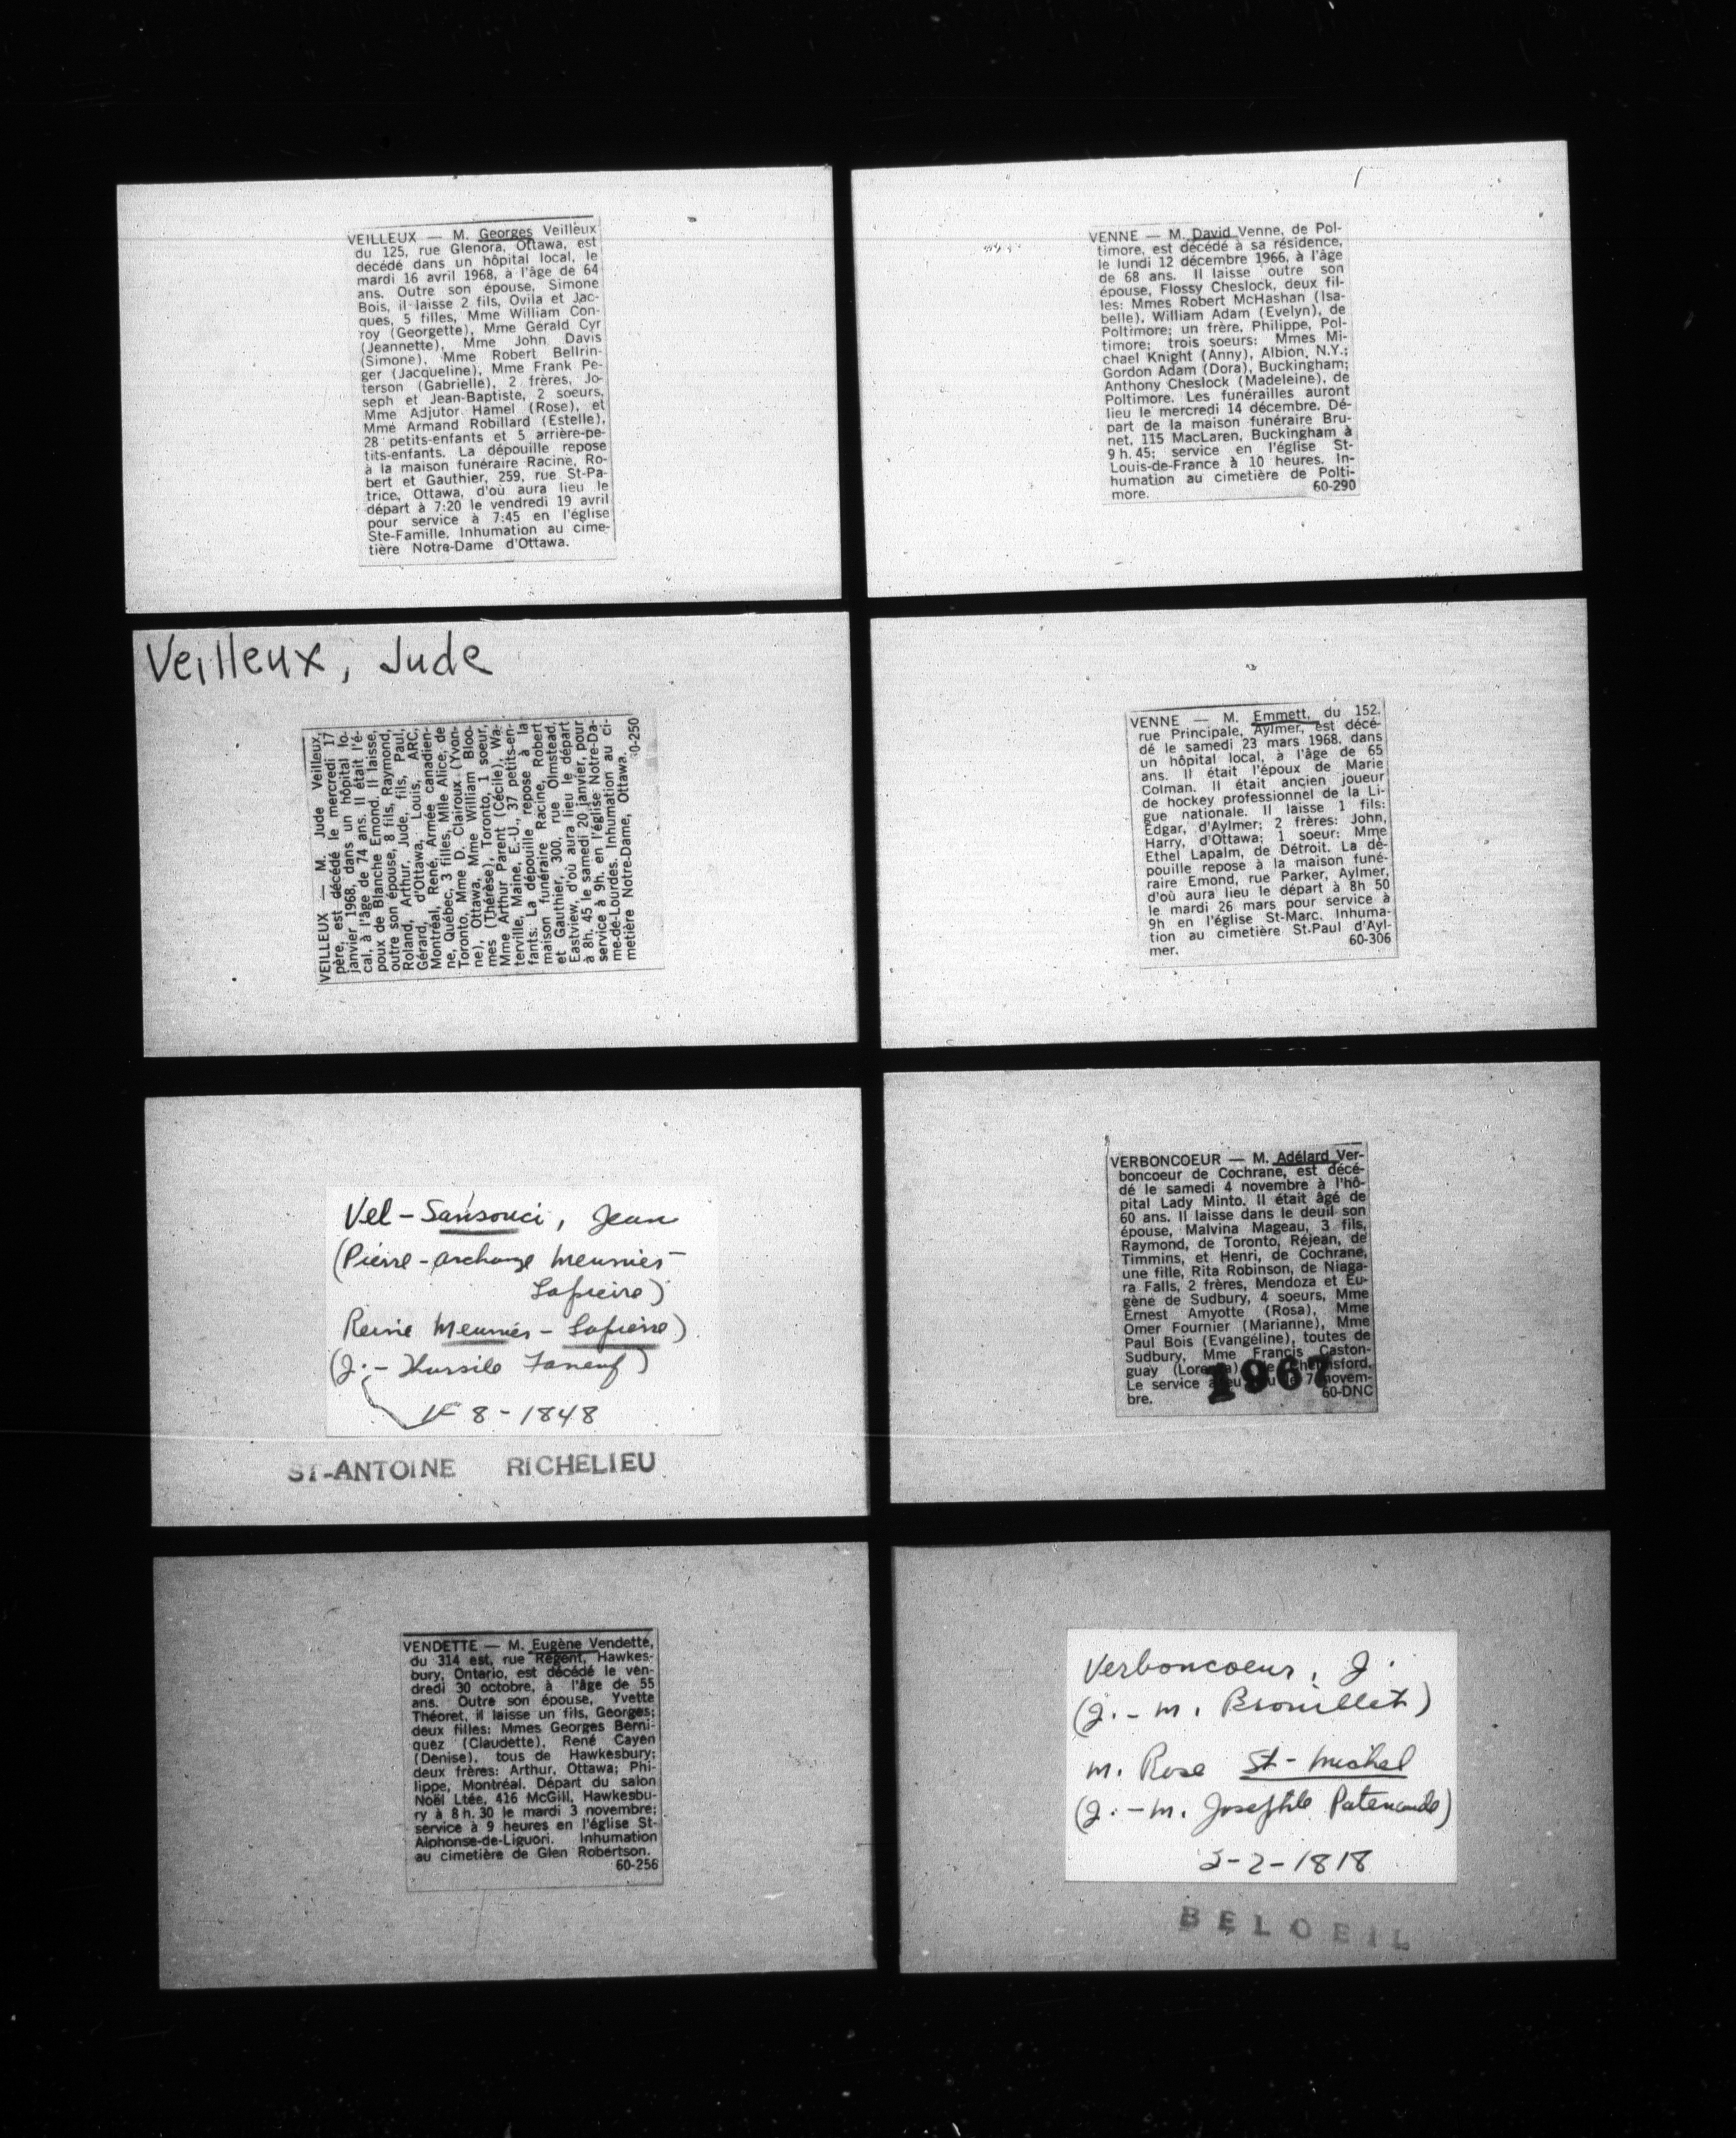 VEILLEUX — M. Georges Veilleux
du 125, rue Glenora, Ottawa, est
décédé dans un hôpital local, le
mardi 16 avril 1968, à l'âge de 64
ans. Outre son épouse, Simone
Bois, il laisse 2 fils, Ovila et Jac-
ques, 5 filles, Mme William Con-
roy (Georgette), Mme Gérald Cyr
(Jeannette), Mme John Davis
(Simone), Mme Robert Bellrin-
ger (Jacqueline), Mme Frank Pe-
terson (Gabrielle), 2 frères, Jo-
seph et Jean-Baptiste, 2 soeurs,
Mme Adjutor Hamel (Rose), et
Mme Armand Robillard (Estelle),
28 petits-enfants et 5 arrière-pe-
tits-enfants. La dépouille repose
à la maison funéraire Racine, Ro-
bert et Gauthier, 259, rue St-Pa-
trice, Ottawa, d'où aura lieu le
départ à 7:20 le vendredi 19 avril
pour service à 7:45 en l'église
Ste-Famille. Inhumation au cime-
tière Notre-Dame d'Ottawa.
VENNE — M. David Venne, de Pol-
timore, est décédé à sa résidence,
le lundi 12 décembre 1966, à l'âge
de 68 ans. Il laisse outre son
épouse, Flossy Cheslock, deux fil-
les: Mmes Robert McHashan (Isa-
belle), William Adam (Evelyn), de
Poltimore; un frère, Philippe, Pol-
timore; trois soeurs: Mmes Mi-
chael Knight (Anny), Albion, N.Y.;
Gordon Adam (Dora), Buckingham;
Anthony Cheslock (Madeleine), de
Poltimore. Les funérailles auront
lieu le mercredi 14 décembre. Dé-
part de la maison funéraire Bru-
net, 115 MacLaren, Buckingham à
9 h. 45; service en l'église St-
Louis-de-France à 10 heures. In-
humation au cimetière de Polti-
more. 60-290
Veilleux, Jude
VEILLEUX — M. Jude Veilleux,
père, est décédé le mercredi 17
janvier 1968, dans un hôpital lo-
cal, à l'âge de 74 ans. Il était l'é-
poux de Blanche Emond. Il laisse,
outre son épouse, 8 fils, Raymond,
Roland, Arthur, Jude, fils, Paul,
Gérard, d'Ottawa, Louis, ARC,
Montréal, René, Armée canadien-
ne, Québec, 3 filles, Mlle Alice, de
Toronto, Mme D. Clairoux (Yvon-
ne), Ottawa, Mme William Bloo-
mes (Thérèse), Toronto, 1 soeur,
Mme Arthur Parent (Cécile), Wa-
terville, Maine, E.-U., 37 petits-en-
fants. La dépouille repose à la
maison funéraire Racine, Robert
et Gauthier, 300, rue Olmstead,
Eastview, d'où aura lieu le départ
à 8h. 45 le samedi 20 janvier, pour
service à 9h. en l'église Notre-Da-
me-de-Lourdes. Inhumation au ci-
metière Notre-Dame, Ottawa.
0-250
VENNE — M. Emmett, du 152,
rue Principale, Aylmer, est décé-
dé le samedi 23 mars 1968, dans
un hôpital local, à l'âge de 65
ans. Il était l'époux de Marie
Colman. Il était ancien joueur
de hockey professionnel de la Li-
gue nationale. Il laisse 1 fils:
Edgar, d'Aylmer; 2 frères: John,
Harry, d'Ottawa; 1 soeur: Mme
Ethel Lapalm, de Détroit. La dé-
pouille repose à la maison funé-
raire Emond, rue Parker, Aylmer,
d'où aura lieu le départ à 8h 50
le mardi 26 mars pour service à
9h en l'église St-Marc. Inhuma-
tion au cimetière St.Paul d'Ayl-
mer. 60-306
Vel-Sansouci, Jean
(Pierre-archange Meunier-
Lapierre)
Reine Meunier-Lapierre)
(J.- Faneuf)
8-1848
ST-ANTOINE RICHELIEU
VERBONCOEUR — M. Adélard Ver-
boncoeur de Cochrane, est décé-
dé le samedi 4 novembre à l'hô-
pital Lady Minto. Il était âgé de
60 ans. Il laisse dans le deuil son
épouse, Malvina Mageau, 3 fils,
Raymond, de Toronto, Réjean, de
Timmins, et Henri, de Cochrane,
une fille, Rita Robinson, de Niaga-
ra Falls, 2 frères, Mendoza et Eu-
gène de Sudbury, 4 soeurs, Mme
Ernest Amyotte (Rosa), Mme
Omer Fournier (Marianne), Mme
Paul Bois (Evangéline), toutes de
Sudbury, Mme Francis Caston-
guay
Le service 7 novem-
bre. 60-DNC
1967
VENDETTE — M. Eugène Vendette,
du 314 est, rue Régent, Hawkes-
bury, Ontario, est décédé le ven-
dredi 30 octobre, à l'âge de 55
ans. Outre son épouse, Yvette
Théoret, il laisse un fils, Georges;
deux filles: Mmes Georges Berni-
quez (Claudette), René Cayen
(Denise), tous de Hawkesbury;
deux frères: Arthur, Ottawa; Phi-
lippe, Montréal. Départ du salon
Noël Ltée, 416 McGill, Hawkesbu-
ry à 8 h. 30 le mardi 3 novembre;
service à 9 heures en l'église St-
Alphonse-de-Liguori. Inhumation
au cimetière de Glen Robertson.
60-256
Verboncoeur, J.
(J.-M. Brouillet)
M. Rose St-Michel
(J.-M. Josephte Patenaude)
3-2-1818
BELOEIL